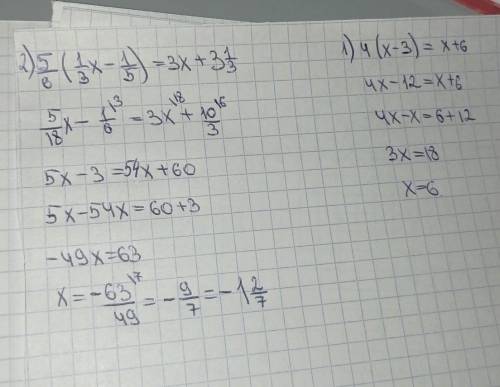 2) 5/6 (1/3 x - 1/5) = 3x + 3 1/3
5/18 x - 1/6 \3 = 3x \18 + 10/3 \6
5x - 3 = 54x + 60
5x - 54x = 60 + 3
-49x = 63
x = -63/49 \7 = -9/7 = -1 2/7
1) 4 (x-3) = x+6
4x - 12 = x+6
4x - x = 6+12
3x = 18
x = 6